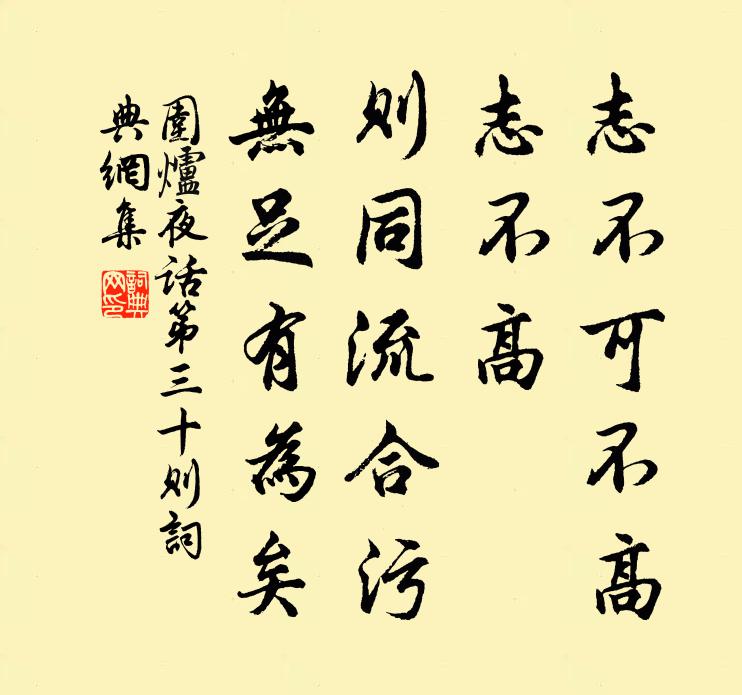 志不可不高
志不高
则同流合污
無足有為矣
圍爐夜话第三十则詞
典網集
詞典
网印